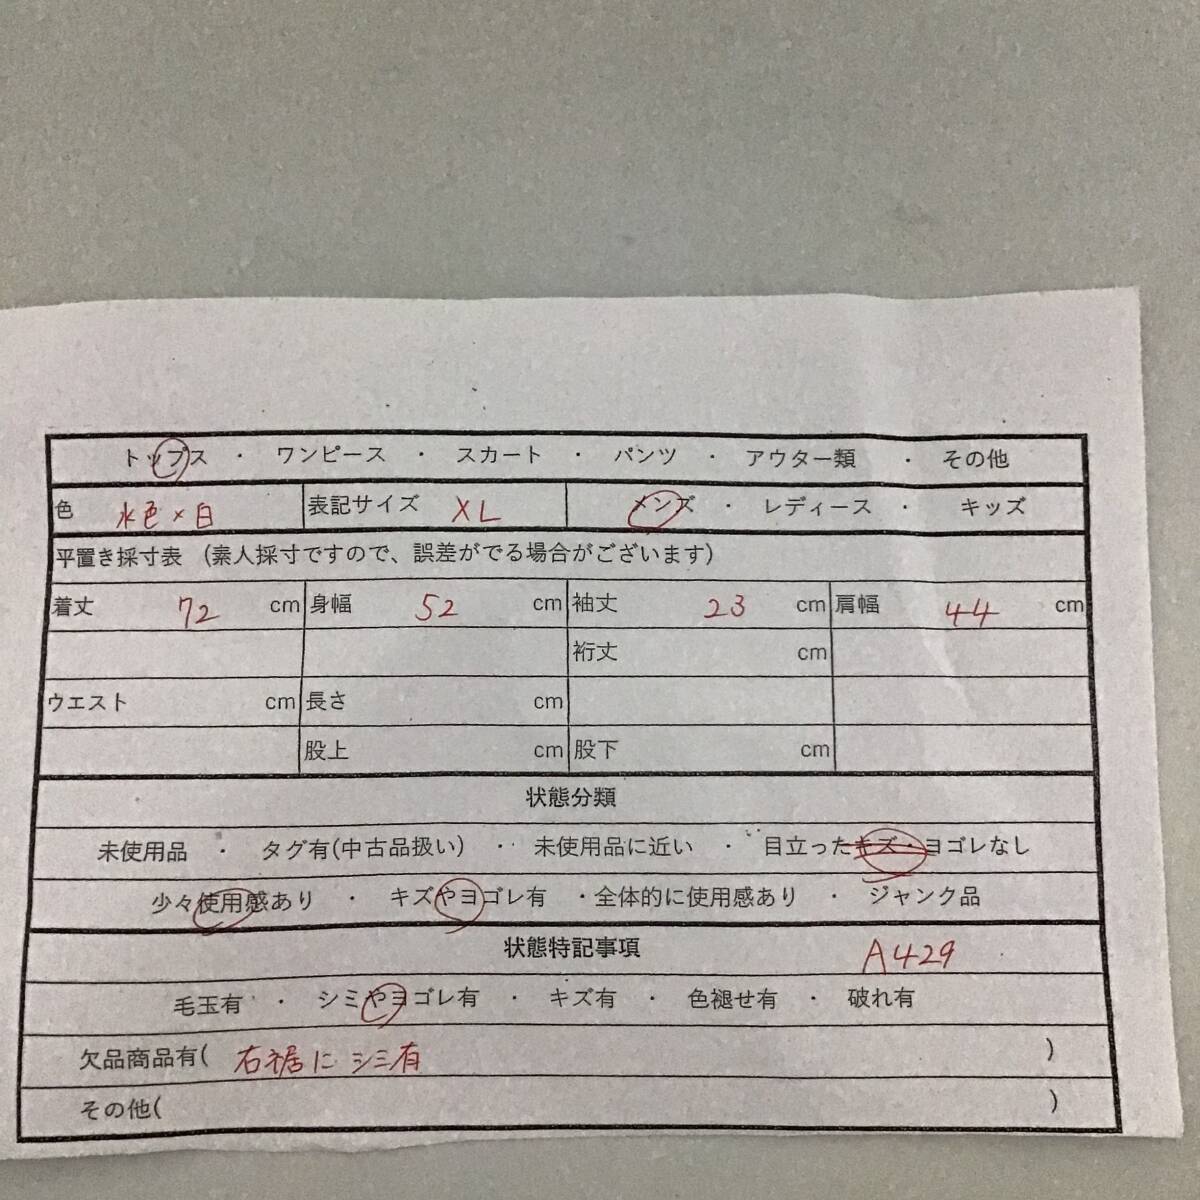 トップス ・ ワンピース ・ スカート ・ パンツ ・ アウター類 ・ その他
色 水色×白 表記サイズ XL メンズ ・ レディース ・ キッズ
平置き採寸表 (素人採寸ですので、誤差がでる場合がございます)
着丈 72 cm 身幅 52 cm 袖丈 23 cm 肩幅 44 cm
裄丈 cm
ウエスト cm 長さ cm
股上 cm 股下 cm
状態分類
未使用品 ・ タグ有(中古品扱い) ・ 未使用品に近い ・ 目立ったキズ・ヨゴレなし
少々使用感あり ・ キズやヨゴレ有 ・全体的に使用感あり ・ ジャンク品
状態特記事項 A429
毛玉有 ・ シミやヨゴレ有 ・ キズ有 ・ 色褪せ有 ・ 破れ有
欠品商品有( 右裾に シミ有 )
その他( )